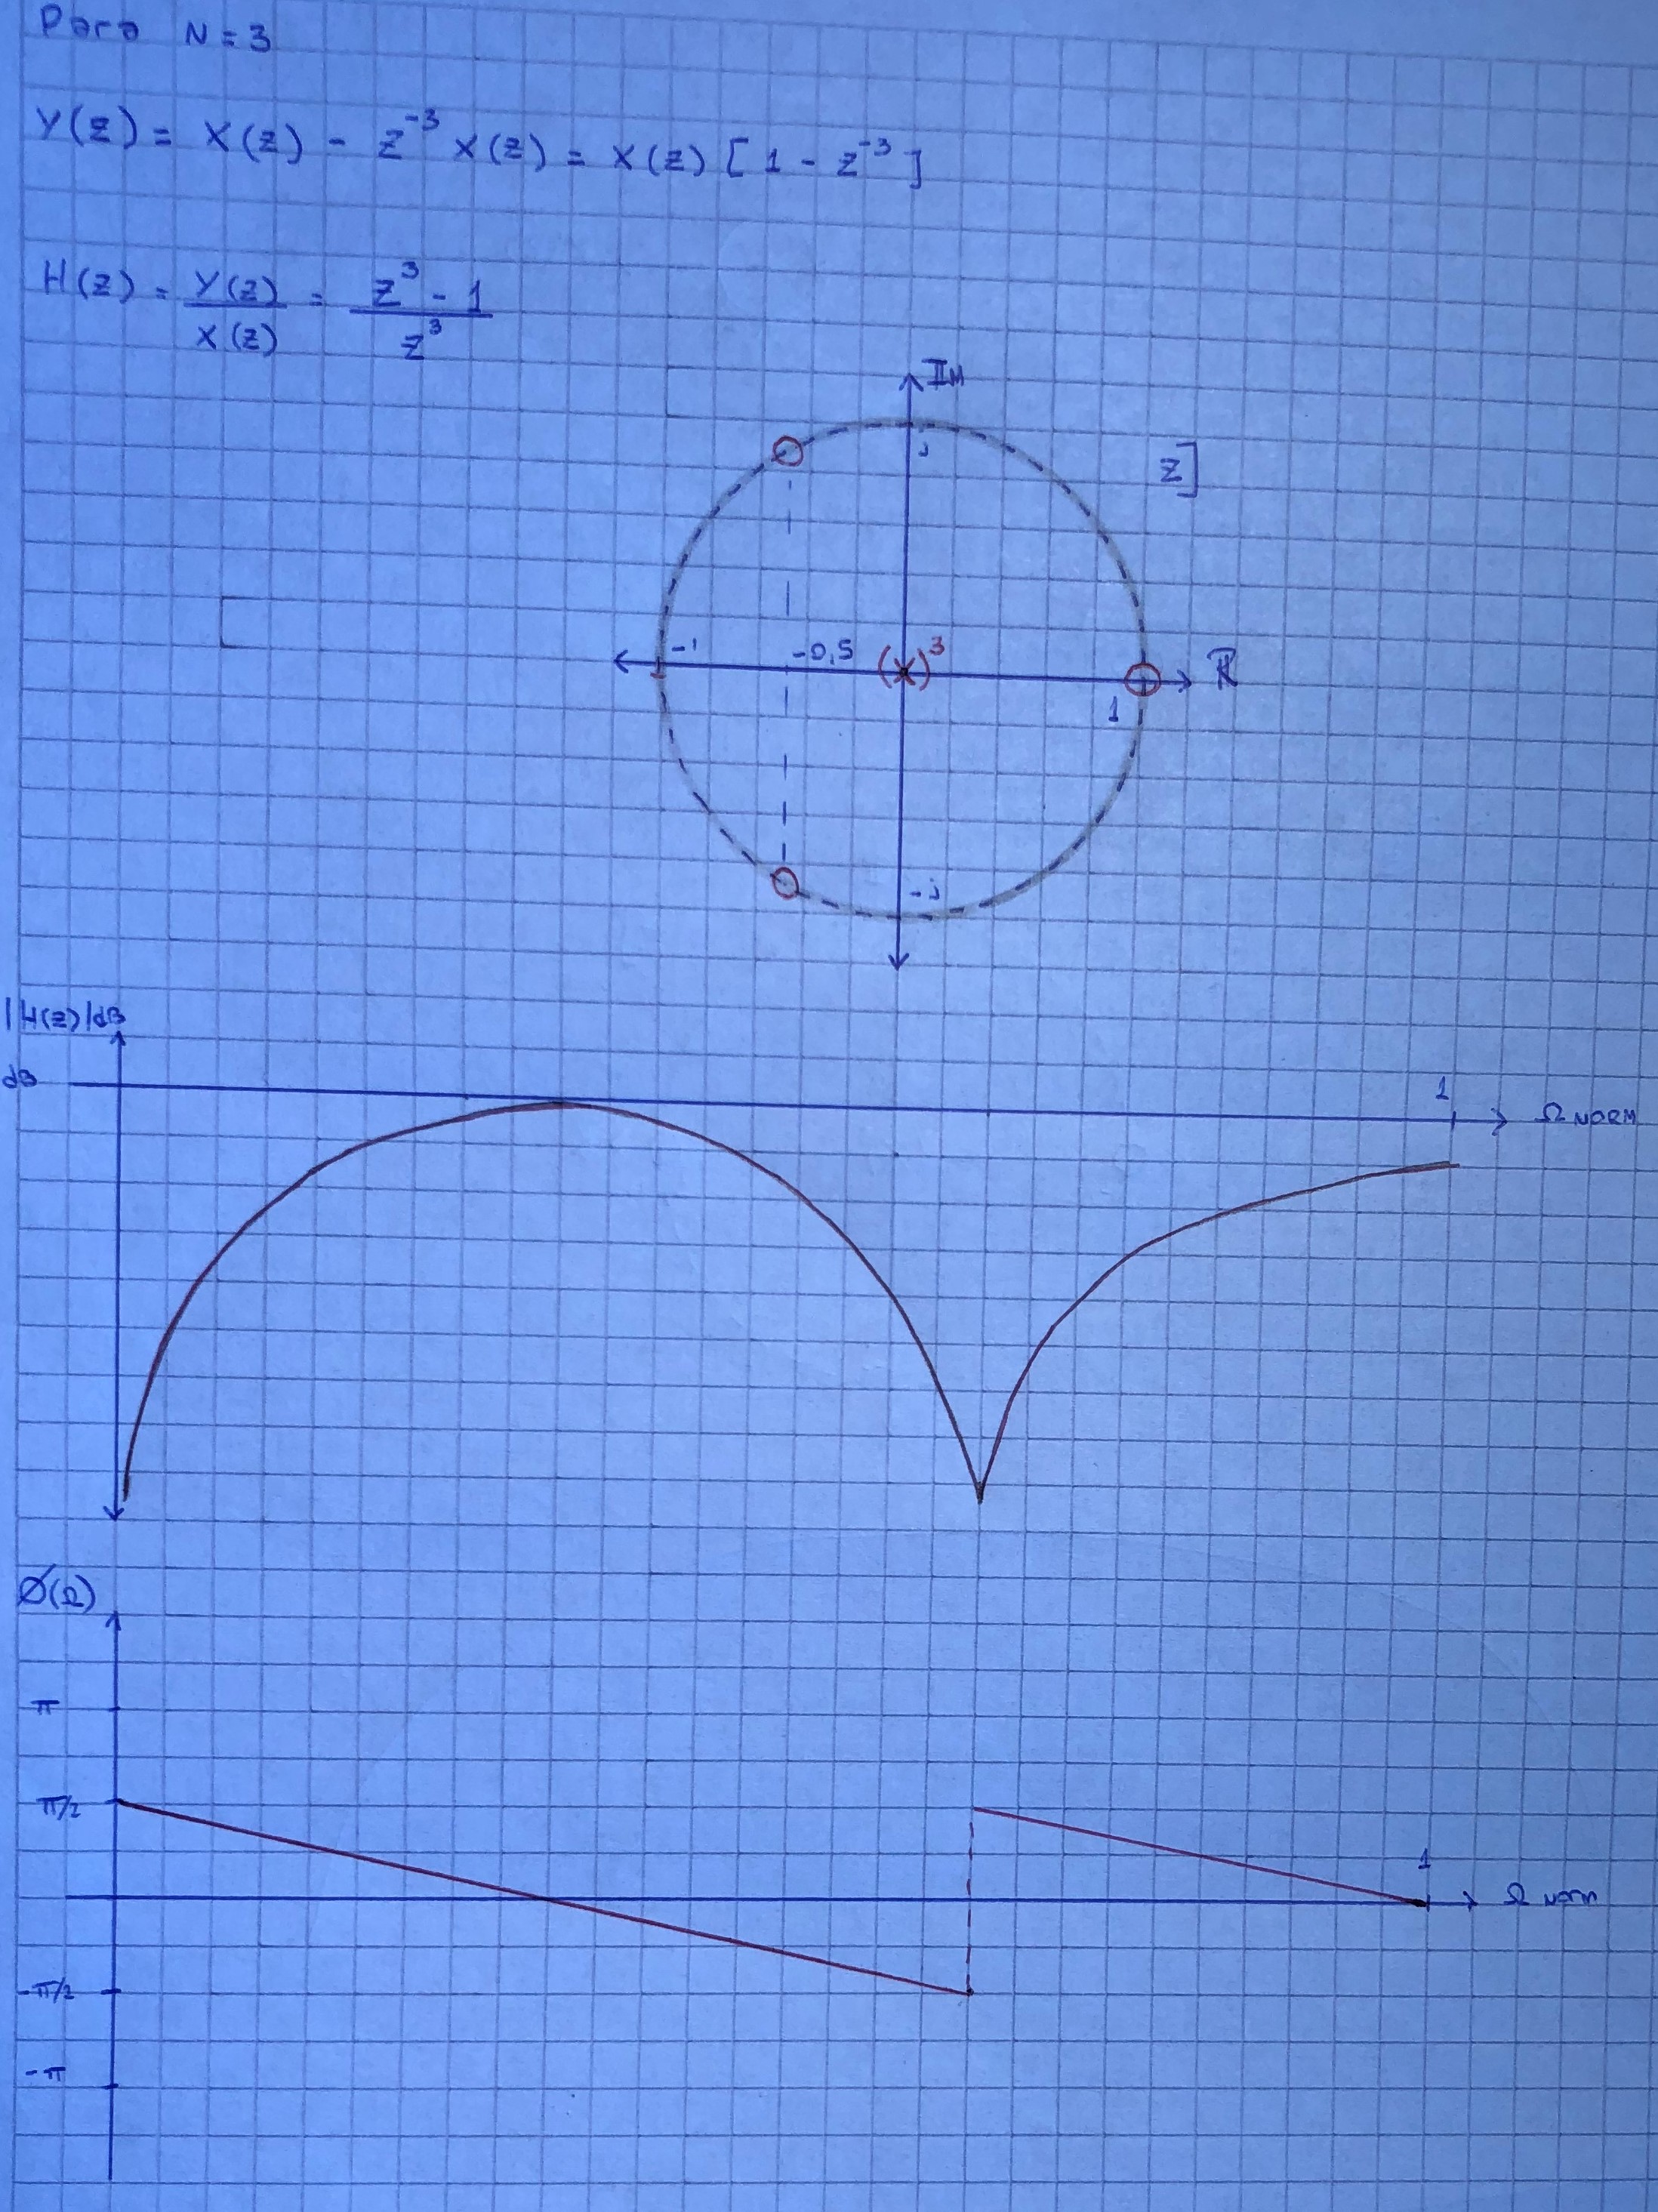 Para N = 3
Y(z) = X(z) - z⁻³ X(z) = X(z) [ 1 - z⁻³ ]
H(z) = Y(z)/X(z) = (z³ - 1)/z³
IM
j
z]
-1 -0,5 (x)³ ℝ
1
-j
|H(z)|dB
dB
1
Ω NORM
Ø(Ω)
π
π/2
1
Ω norm
-π/2
-π